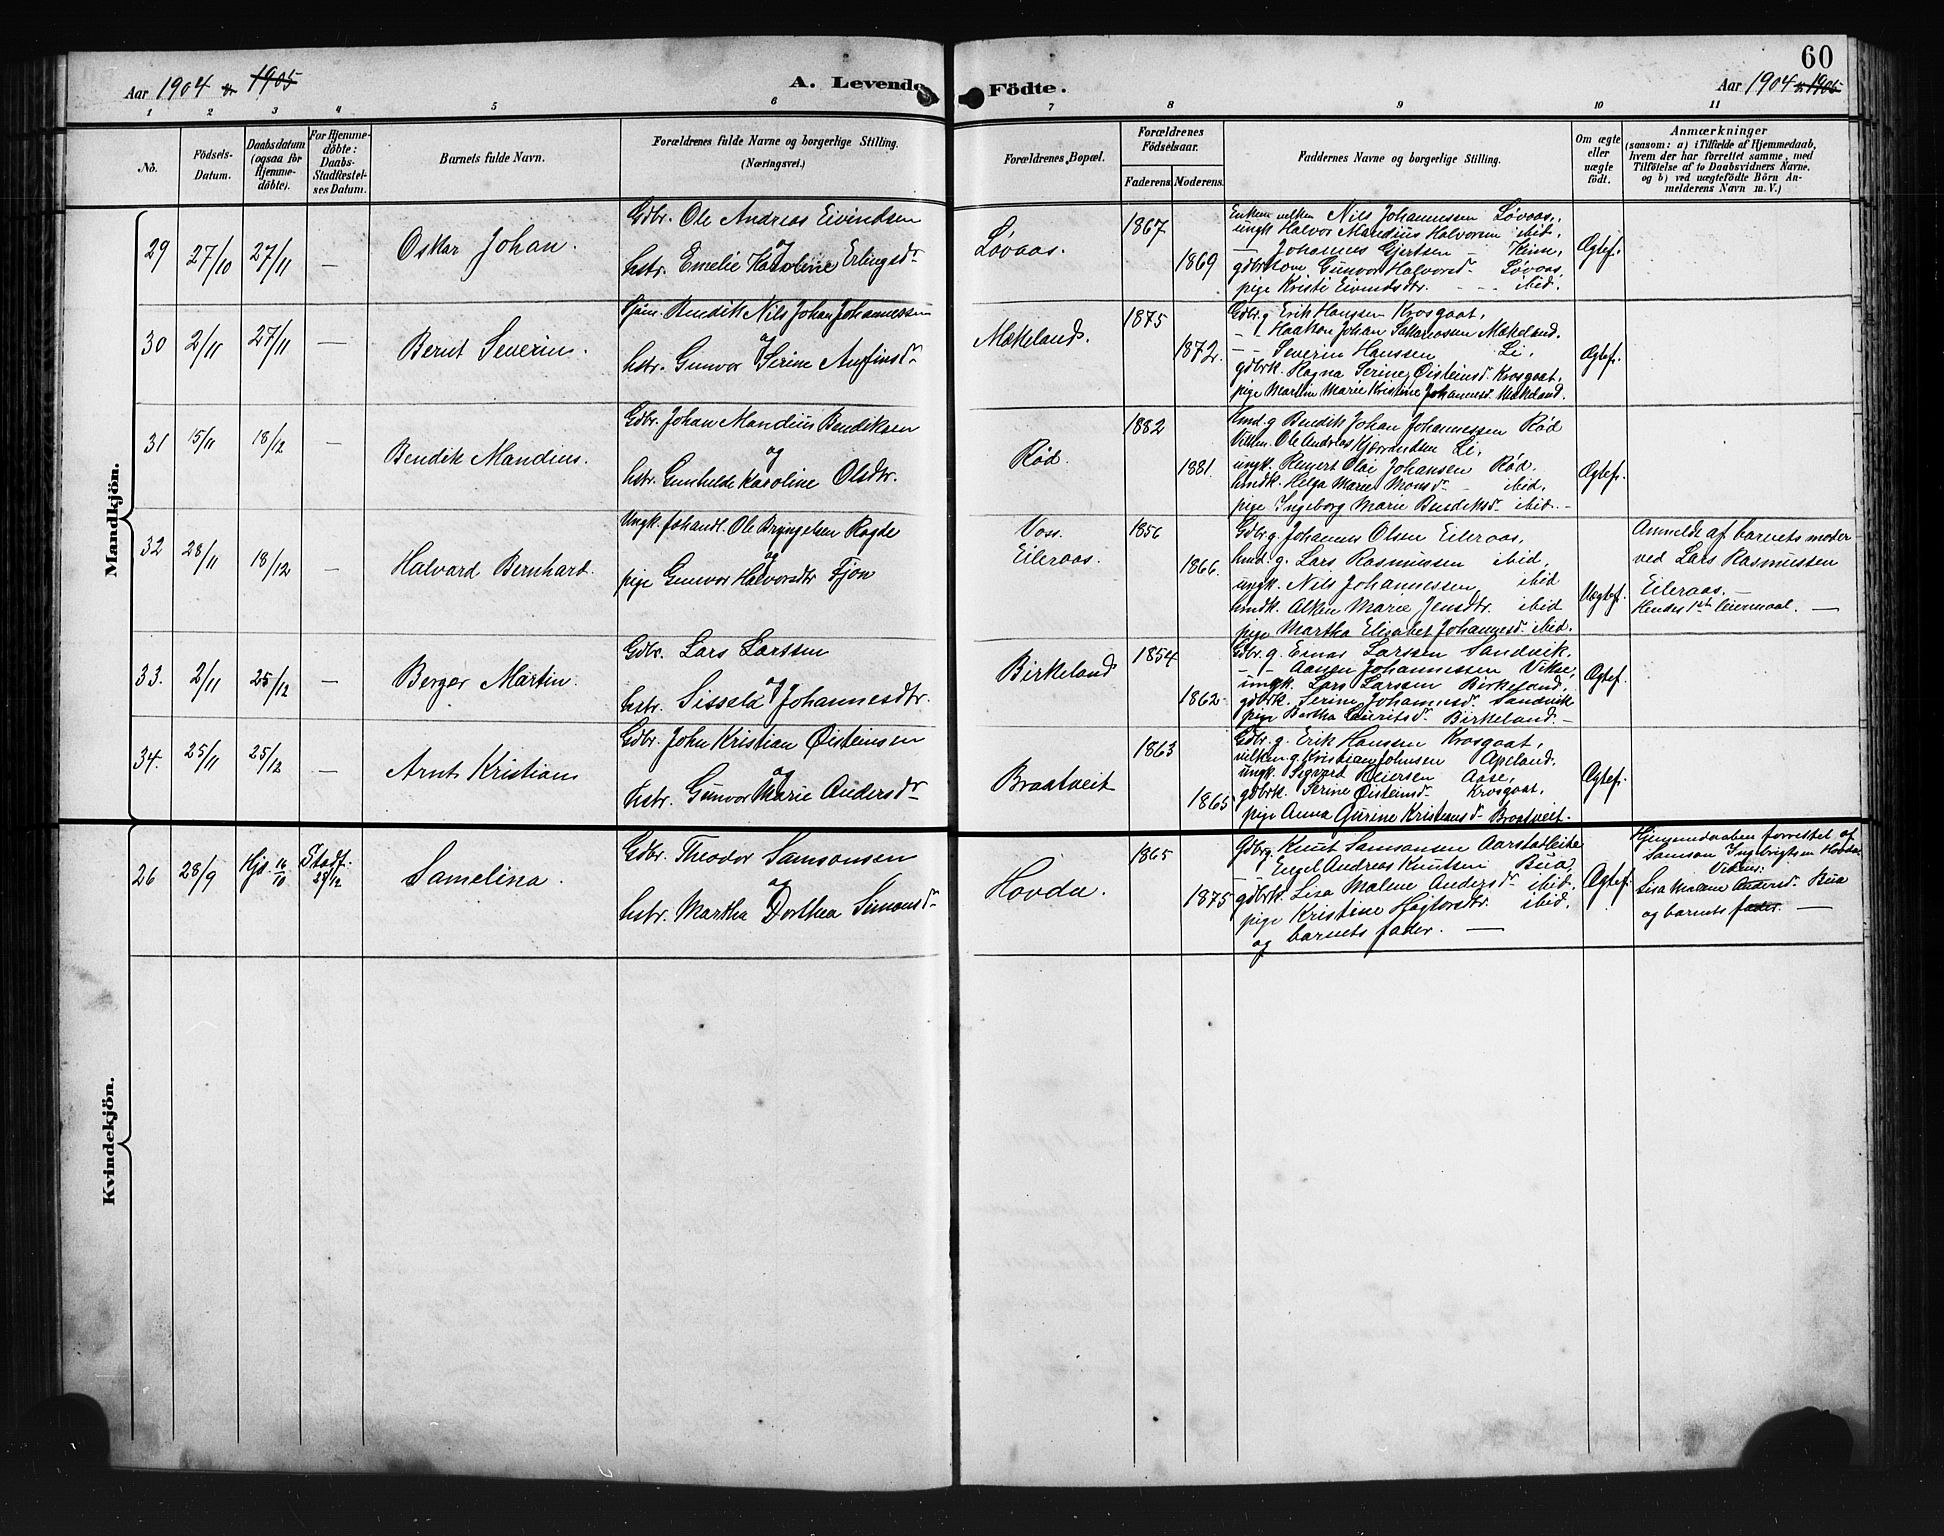 60
Aar 1904 & 1905
A. Levende Födte.
Aar 1904 & 1905
1 2 3 4 5 6 7 8 9 10 11
No.
Födsels-Datum.
Daabsdatum (ogsaa for Hjemme-döbte).
For Hjemme-döbte: Daabs-Stadfæstel-ses Datum.
Barnets fulde Navn.
Forældrenes fulde Navne og borgerlige Stilling.
(Næringsvei.)
Forældrenes Bopæl.
Forældrenes Födselsaar.
Faderens. Moderens.
Faddernes Navne og borgerlige Stilling.
Om ægte eller uægte födt.
Anmærkninger
(saasom: a) i Tilfælde af Hjemmedaab, hvem der har forrettet samme, med Tilföielse af to Daabsvidners Navne, og b) ved uægtefödte Börn An-melderens Navn m. V.)
Mandkjön.
29 27/10 27/11 — Oskar Johan.
Gdbr. Ole Andreas Eivindsen
og
hstr. Emelie Karoline Erlingsdr
Løvaas.
1867
1869
Enkem. velken Nils Johannessen Løvaas,
ungk. Halvor Mandius Halvorsen ibid,
— Johannes Gjertsen — Heim,
gdbrkone Gunvor Halvorsd. Løvaas,
pige Kristi Eivindsdtr. - - - ibid.
Ægtef.
30 2/11 27/11 — Bernt Severin.
Sjøm. Bendik Nils Johan Johannessen
og
hstr. Gunvor Serine Anfinsdr
Mækeland.
1875
1872.
Gdbr.g. Erik Hanssen Krosgaat,
— Haakon Johan Sakariassen Mækeland.
— Severin Hanssen Li,
gdbrk. Ragna Serine Øisteinsd. Krosgaat,
pige Marthin Marie Kristine Johannesd. Mækeland.
Ægtef.
31 15/11 18/12 — Bendik Mandius.
Gdbr. Johan Mandius Bendiksen
og
hstr. Gunhilde Karoline Olsdtr.
Rød.
1882
1881.
Kmd. g Bendik Johan Johannessen Rød
Velken. Ole Andreas Li,
ungk. Reinert Olai Johansen Rød.
hmdk. Helga Marie Monsd. — ibid,
pige Ingeborg Marie Bendiksd. ibid. -
Ægtef.
32 28/11 18/12 — Halvard Bernhard.
Ungk. Johandl. Ole Bryngelsen Rogde
og
pige Gunvor Halvorsdtr Fjon
Voss.
Eileraas.
1856
1866.
Gdbr g. Johannes Olsen Eileraas,
hmd. g. Lars Rasmussen ibid,
ungk. Nils Johannessen ibid
hmdk. Alken Marie Jensdtr. ibid
pige Martha Elisabet Johannesd. ibid.
Uægtef.
Anmeldt af barnets moder
ved Lars Rasmussen
Eileraas. —
Hendes 1ste leiermaal. —
33. 2/11 25/12 — Berger Martin.
Gdbr. Lars Larssen
og
hstr. Sissela Johannesdtr.
Birkeland
1854
1862
Gdbr. g. Einar Larssen Sandvik,
— Aanen Johannessen Vikse,
ungk. Lars Larssen Birkeland,
gdbrk. Serine Johannesd. Sandvik
pige Bertha Lauritsd. Birkeland —
Ægtef.
34. 25/11 25/12 — Arnt Kristian
Gdbr. John Kristian Øisteinsen
og
hstr. Gunvor Marie Andersdr
Braatveit
1863
1865
Gdbr. g. Erik Hanssen Krosgaat,
velken g. Kristian Johnsen Apeland.
ungk. Sigvard Peiersen Aase,
gdbrk. Serine Øisteinsd. Krosgaat,
pige Anna Gurine Kristiansd. Braatveit.
Ægtef.
Kvindekjön.
26 28/9 Hjd. 16/10 Stadf. 27/12 Samelina.
Gdbr. Theodor Samsonsen
og
hstr. Martha Dorthea Simonsdr
Hovda.
1865
1875
Gdbrg. Knut Samsonsen
— Engel Andreas Knutsen Bua,
gdbrk. Lisa Malene Andersd. ibid,
pige Kristine ibid.
og barnets fader. —
Ægtef.
Hjemmedaaben forrettet af
Samson Ingebrigtsen Hovda
Vidner:
Lisa Malene Andersd. Bua
og barnets fader. —